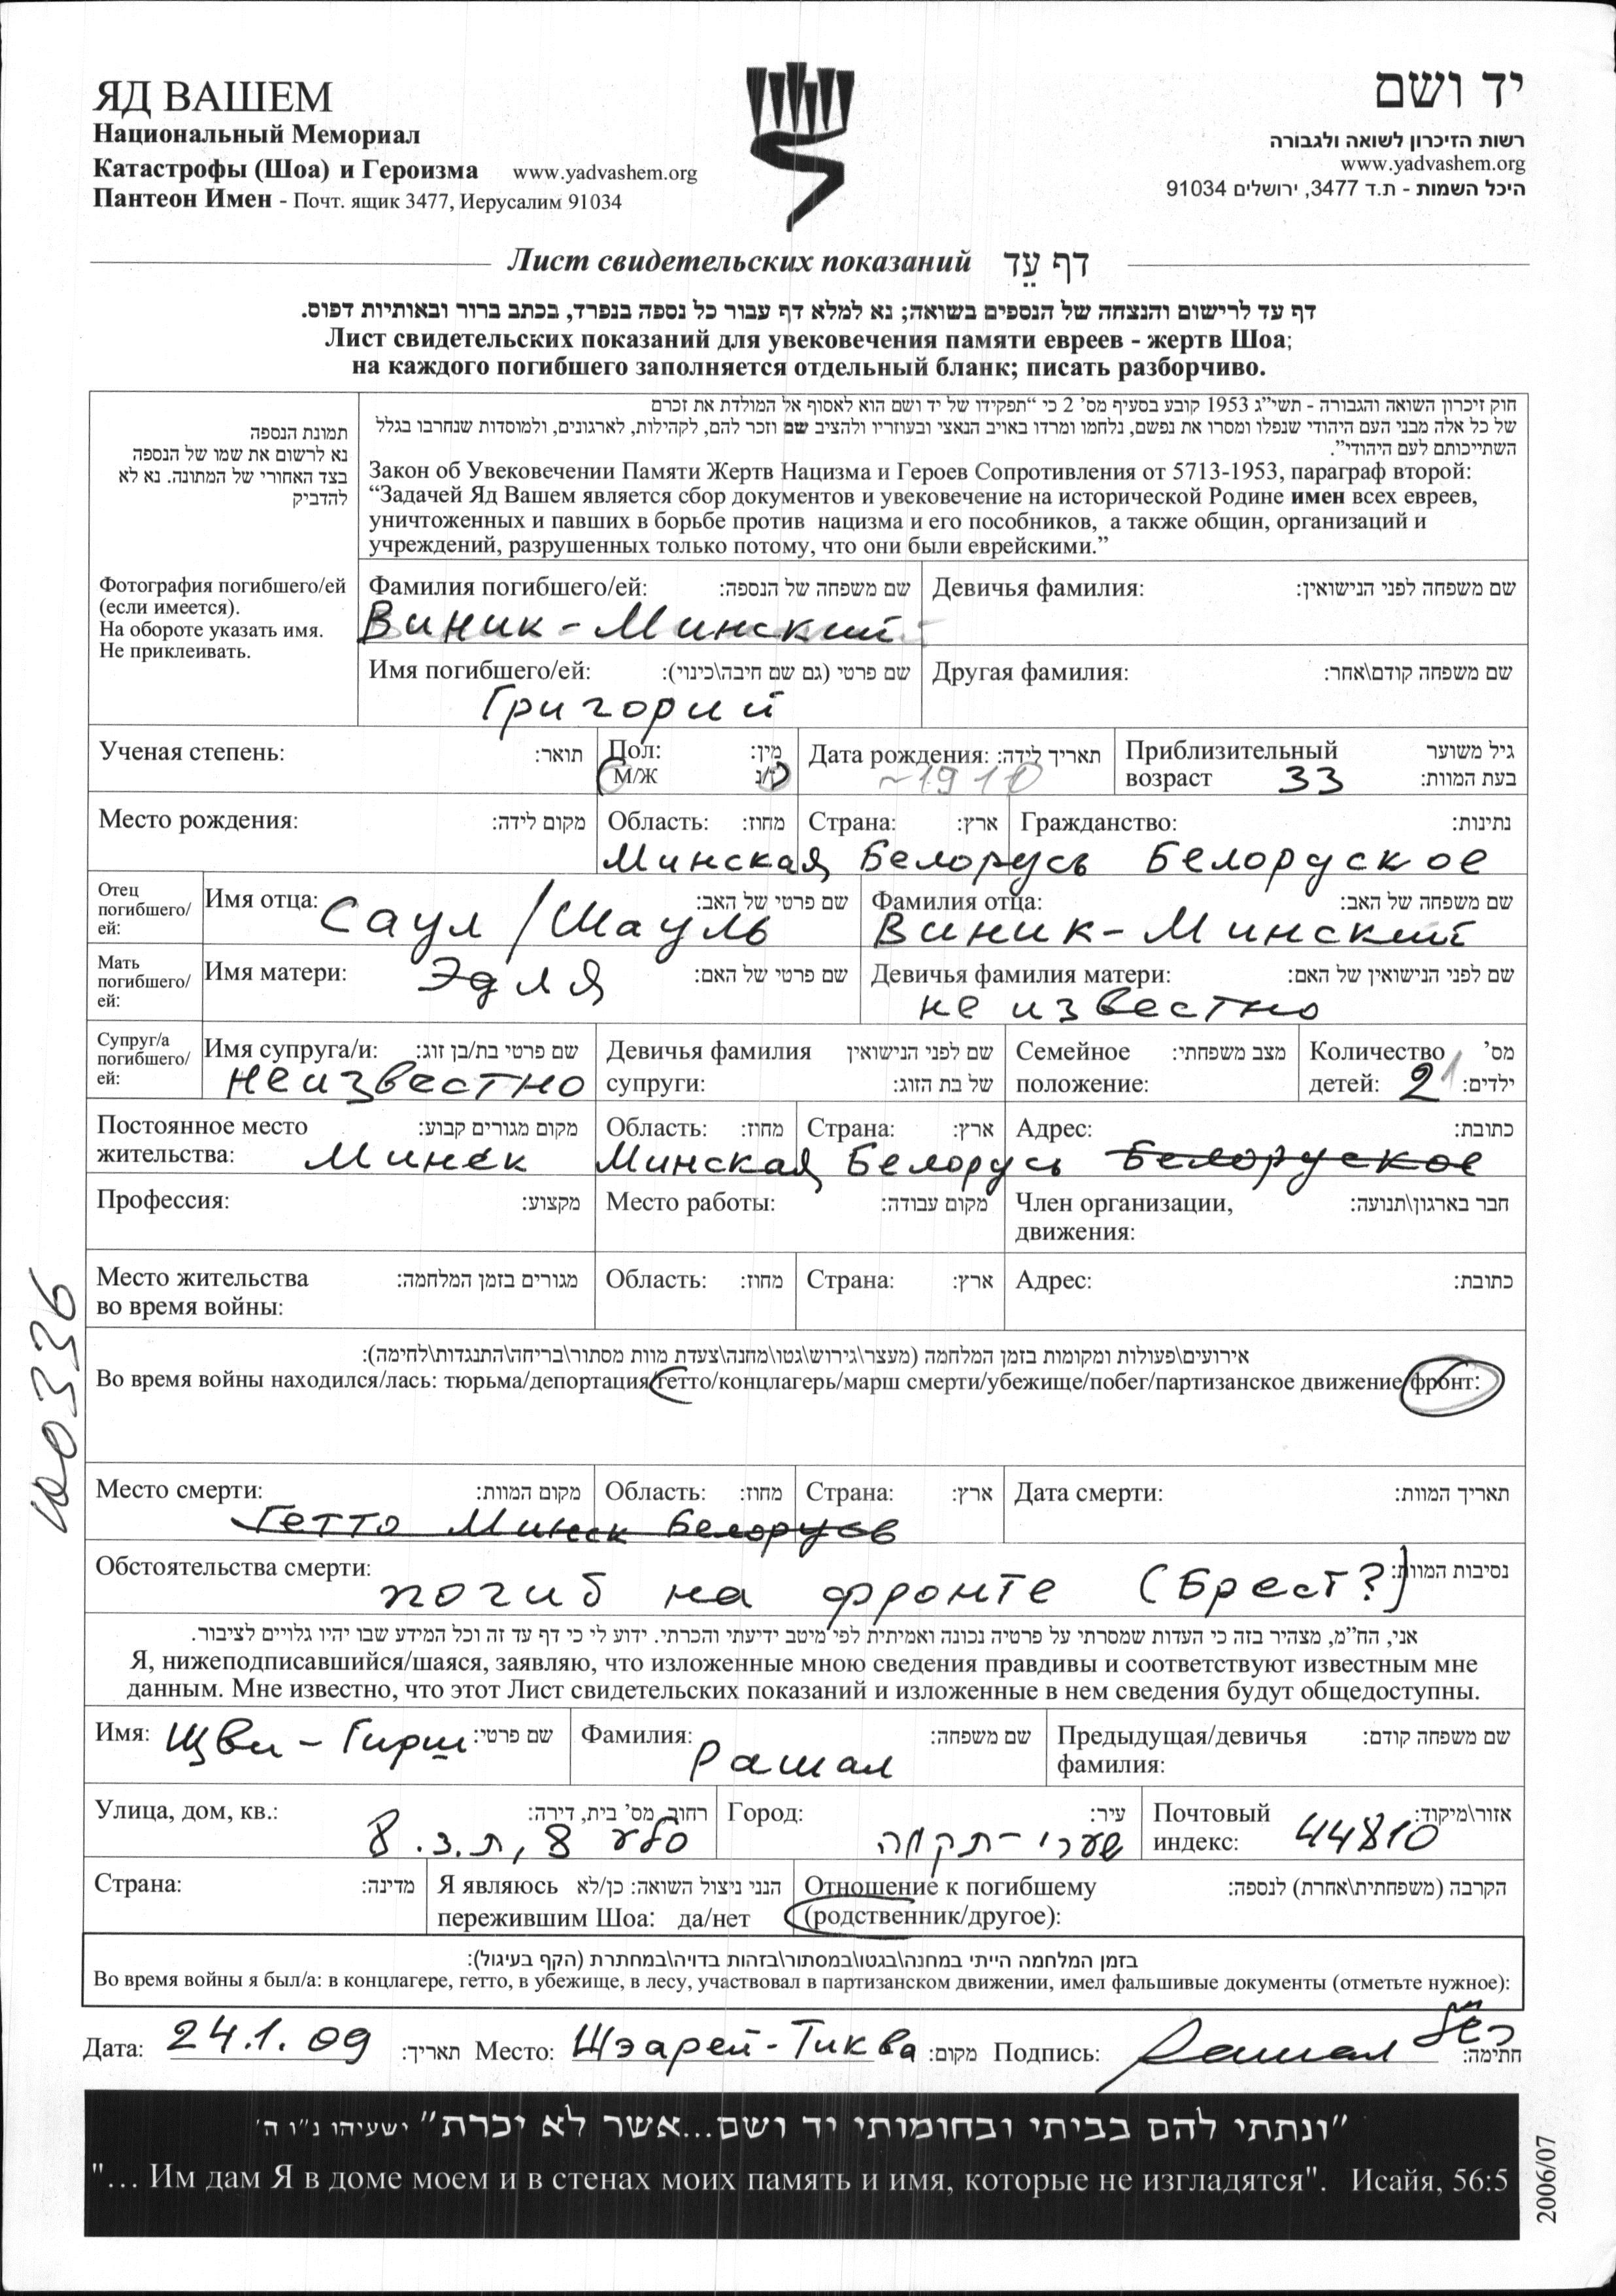 ЯД ВАШЕМ
Национальный Мемориал
Катастрофы (Шоа) и Героизма www.yadvashem.org
Пантеон Имен - Почт. ящик 3477, Иерусалим 91034
יד ושם
רשות הזיכרון לשואה ולגבורה
www.yadvashem.org
היכל השמות - ת.ד 3477, ירושלים 91034
Лист свидетельских показаний דף עֵד
דף עד לרישום והנצחה של הנספים בשואה; נא למלא דף עבור כל נספה בנפרד, בכתב ברור ובאותיות דפוס.
Лист свидетельских показаний для увековечения памяти евреев - жертв Шоа;
на каждого погибшего заполняется отдельный бланк; писать разборчиво.
תמונת הנספה
נא לרשום את שמו של הנספה
בצד האחורי של המתונה. נא לא
להדביק
Фотография погибшего/ей
(если имеется).
На обороте указать имя.
Не приклеивать.
חוק זיכרון השואה והגבורה - תשי״ג 1953 קובע בסעיף מס' 2 כי “תפקידו של יד ושם הוא לאסוף אל המולדת את זכרם
של כל אלה מבני העם היהודי שנפלו ומסרו את נפשם, נלחמו ומרדו באויב הנאצי ובעוזריו ולהציב שם וזכר להם, לקהילות, לארגונים, ולמוסדות שנחרבו בגלל
השתייכותם לעם היהודי”.
Закон об Увековечении Памяти Жертв Нацизма и Героев Сопротивления от 5713-1953, параграф второй:
“Задачей Яд Вашем является сбор документов и увековечение на исторической Родине имен всех евреев,
уничтоженных и павших в борьбе против нацизма и его пособников, а также общин, организаций и
учреждений, разрушенных только потому, что они были еврейскими.”
Фамилия погибшего/ей: שם משפחה של הנספה: Девичья фамилия: שם משפחה לפני הנישואין:
Виник-Минский
Имя погибшего/ей: שם פרטי (גם שם חיבה\כינוי): Другая фамилия: שם משפחה קודם\אחר:
Григорий
Ученая степень: תואר: Пол: מין: Дата рождения: תאריך לידה: Приблизительный גיל משוער
М/Ж ז/נ ~1910 возраст 33 בעת המוות:
Место рождения: מקום לידה: Область: מחוז: Страна: ארץ: Гражданство: נתינות:
Минская Белорусь Белоруское
Отец погибшего/ей: Имя отца: שם פרטי של האב: Фамилия отца: שם משפחה של האב:
Саул/Шауль Виник-Минский
Мать погибшего/ей: Имя матери: שם פרטי של האם: Девичья фамилия матери: שם לפני הנישואין של האם:
Эдля не известно
Супруг/а погибшего/ей: Имя супруга/и: שם פרטי בת/בן זוג: Девичья фамилия שם לפני הנישואין Семейное מצב משפחתי: Количество מס'
неизвестно супруги: של בת הזוג: положение: детей: 2 1 ילדים:
Постоянное место מקום מגורים קבוע: Область: מחוז: Страна: ארץ: Адрес: כתובת:
жительства: Минск Минская Белорусь Белоруское
Профессия: מקצוע: Место работы: מקום עבודה: Член организации, חבר בארגון\תנועה:
движения:
Место жительства מגורים בזמן המלחמה: Область: מחוז: Страна: ארץ: Адрес: כתובת:
во время войны:
אירועים\פעולות ומקומות בזמן המלחמה (מעצר\גירוש\גטו\מחנה\צעדת מוות מסתור\בריחה\התנגדות\לחימה):
Во время войны находился/лась: тюрьма/депортация/гетто/концлагерь/марш смерти/убежище/побег/партизанское движение/фронт:
Место смерти: מקום המוות: Область: מחוז: Страна: ארץ: Дата смерти: תאריך המוות:
Гетто Минск Белорусь
Обстоятельства смерти: נסיבות המוות:
погиб на фронте (Брест?)
אני, הח״מ, מצהיר בזה כי העדות שמסרתי על פרטיה נכונה ואמיתית לפי מיטב ידיעתי והכרתי. ידוע לי כי דף עד זה וכל המידע שבו יהיו גלויים לציבור.
Я, нижеподписавшийся/шаяся, заявляю, что изложенные мною сведения правдивы и соответствуют известным мне
данным. Мне известно, что этот Лист свидетельских показаний и изложенные в нем сведения будут общедоступны.
Имя: Цви-Гирш שם פרטי: Фамилия: שם משפחה: Предыдущая/девичья שם משפחה קודם:
Рашал фамилия:
Улица, дом, кв.: רחוב, מס' בית, דירה: Город: עיר: Почтовый אזור\מיקוד:
סלע 8, ת.צ. 8 שערי-תקווה индекс: 44810
Страна: מדינה: Я являюсь הנני ניצול השואה: כן/לא Отношение к погибшему הקרבה (משפחתית\אחרת) לנספה:
пережившим Шоа: да/нет (родственник/другое):
בזמן המלחמה הייתי במחנה\בגטו\במסתור\בזהות בדויה\במחתרת (הקף בעיגול):
Во время войны я был/а: в концлагере, гетто, в убежище, в лесу, участвовал в партизанском движении, имел фальшивые документы (отметьте нужное):
Дата: 24.1.09 תאריך: Место: Шэарей-Тиква מקום: Подпись: Рашал חתימה:
״ונתתי להם בביתי ובחומותי יד ושם...אשר לא יכרת״ ישעיהו נ״ו ה'
"... Им дам Я в доме моем и в стенах моих память и имя, которые не изгладятся". Исайя, 56:5
2006/07